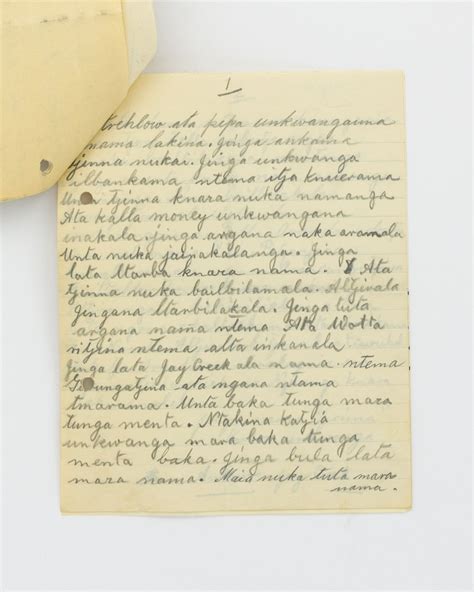 1
trehlow ata pepa unkwangauna
nama lakina. Jinga ankama
tjinna nukai. Jinga unkwanga
ilbankama ntema itja knierama
Unta tjinna knara nuka namanga
Ata kalla money unkwangana
inakala. Jinga argana naka aramala
Unta nuka jainakalanga. Jinga
lata Ltarba knara nama. Ata
tjinna nuka bailbilamala. Altjirala
Jingana ltarbilakala. Jinga tuta
argana nama ntema Ata Wotta
ritjina ntema alta inkanala
Jinga lata Jay Creekala nama. ntema
ata ngana ntama
tmarama. Unta baka tunga mara
tunga menta. Ntakina Katjia
unkwanga mara baka tunga
menta baka. Jinga bula lata
mara nama. Maia nuka tuta mara
nama.